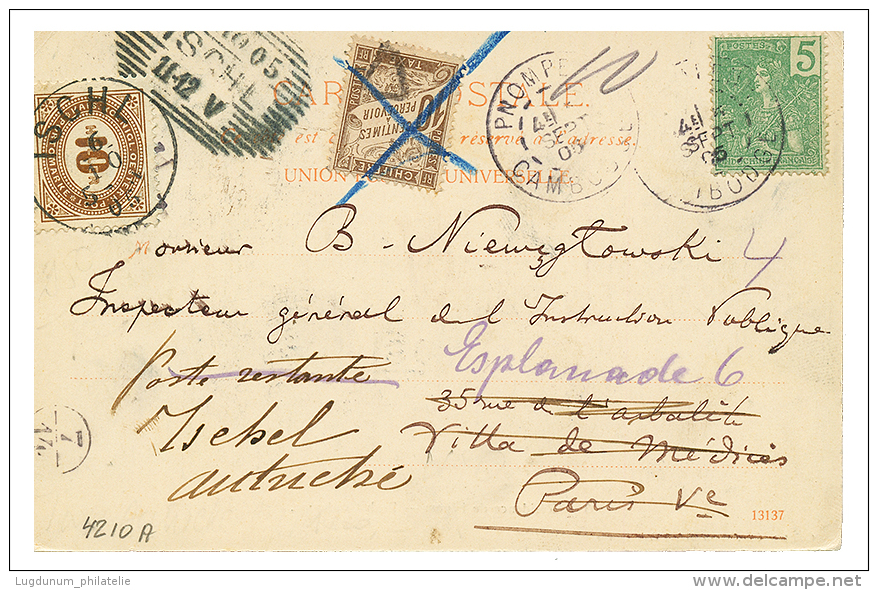 ISCHL
10 05
11-12 V
ISCHL
10
10 CENTIMES A PERCEVOIR
POSTES
TAXE
CHIFFRE
CARTE POSTALE.
est réservé à l'adresse.
UNION UNIVERSELLE
PNOMPE
SEPT
05
CAMBODGE
SEPT
BODGE
POSTES
5
Monsieur B. Niewęgłowski 4
Inspecteur général de l'Instruction Publique
Poste restante Esplanade 6
35 rue de l'arbalète
Ischel Villa de Médicis
autriche
Paris Ve
13137
4210 A
Lugdunum_philatelie
delcampe.net